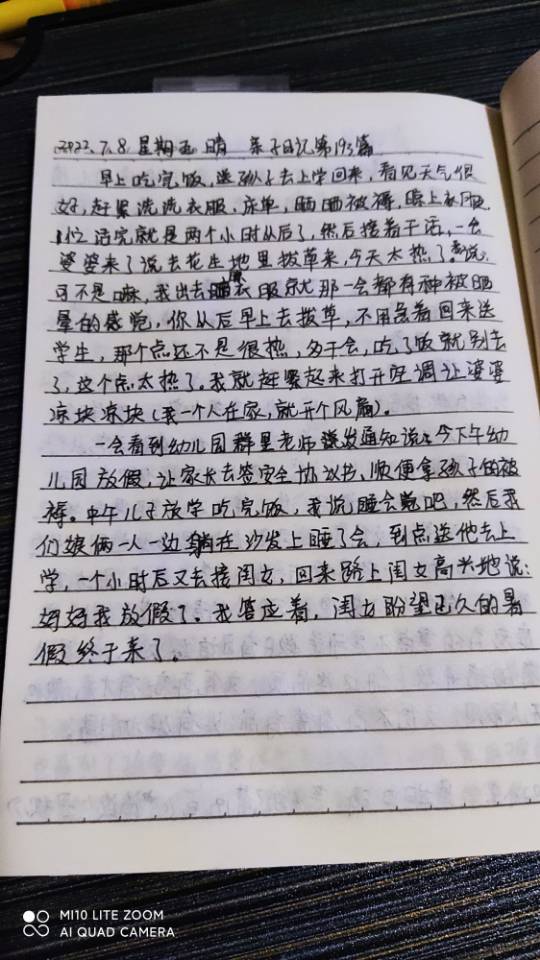 2022.7.8 星期五 晴 亲子日记第193篇
早上吃完饭,送孩子去上学回来,看见天气很
好,赶紧洗洗衣服,床单,晒晒被褥,晾上衣服
忙活完就是两个小时以后了,然后接着干活,一会
婆婆来了说去花生地里拔草来,今天太热了。我说,
可不是嘛,我出去晒衣服就那一会都有种被晒
晕的感觉,你以后早上去拔草,不用急着回来送
学生,那个点还不是很热,多干会,吃了饭就别去
了,这个点太热了。我就赶紧起来打开空调让婆婆
凉快凉快(我一个人在家,就开个风扇)。
一会看到幼儿园群里老师发通知说:今下午幼
儿园放假,让家长去签安全协议书、顺便拿孩子的被
褥。中午儿子放学吃完饭,我说睡会觉吧,然后我
们娘俩一人一边躺在沙发上睡了会,到点送他去上
学,一个小时后又去接闺女,回来路上闺女高兴地说:
妈妈我放假了。我答应着,闺女盼望已久的暑
假终于来了。
MI10 LITE ZOOM
AI QUAD CAMERA